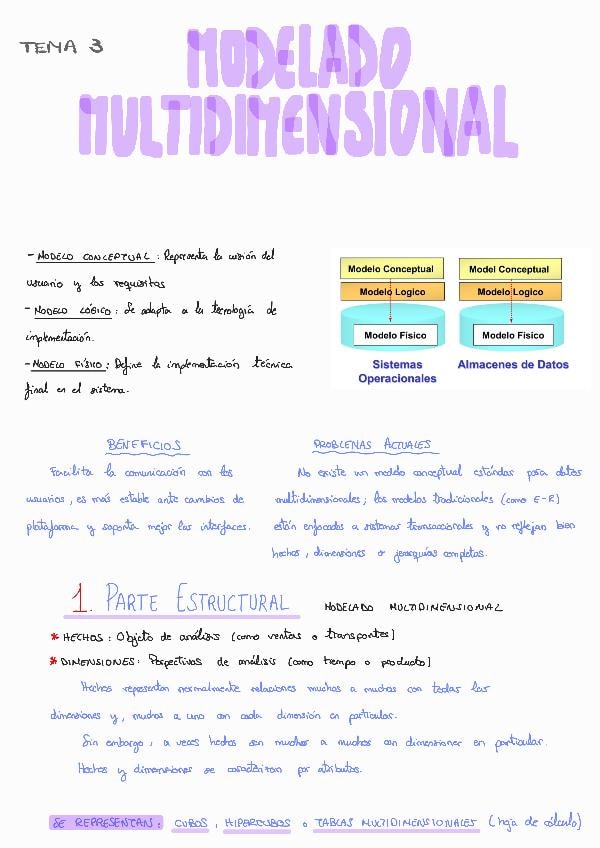 TEMA 3
MODELADO
MULTIDIMENSIONAL
- MODELO CONCEPTUAL : Representa la visión del
usuario y los requisitos
- MODELO LÓGICO : Se adapta a la tecnología de
implementación.
- MODELO FÍSICO : Define la implementación técnica
final en el sistema.
Modelo Conceptual
Modelo Logico
Modelo Fisico
Sistemas
Operacionales
Model Conceptual
Modelo Logico
Modelo Fisico
Almacenes de Datos
BENEFICIOS
Facilita la comunicación con los
usuarios, es más estable ante cambios de
plataforma y soporta mejor las interfaces.
PROBLEMAS ACTUALES
No existe un modelo conceptual estándar para datos
multidimensionales; los modelos tradicionales (como E-R)
están enfocados a sistemas transaccionales y no reflejan bien
hechos, dimensiones o jerarquías complejas.
1. PARTE ESTRUCTURAL MODELADO MULTIDIMENSIONAL
* HECHOS : Objeto de análisis (como ventas o transportes)
* DIMENSIONES: Perspectivas de análisis (como tiempo o producto)
Hechos representan normalmente relaciones muchos a muchos con todas las
dimensiones y, muchos a uno con cada dimensión en particular.
Sin embargo, a veces hechos son muchos a muchos con dimensiones en particular.
Hechos y dimensiones se caracterizan por atributos.
SE REPRESENTAN: CUBOS, HIPERCUBOS o TABLAS MULTIDIMENSIONALES (hoja de cálculo)